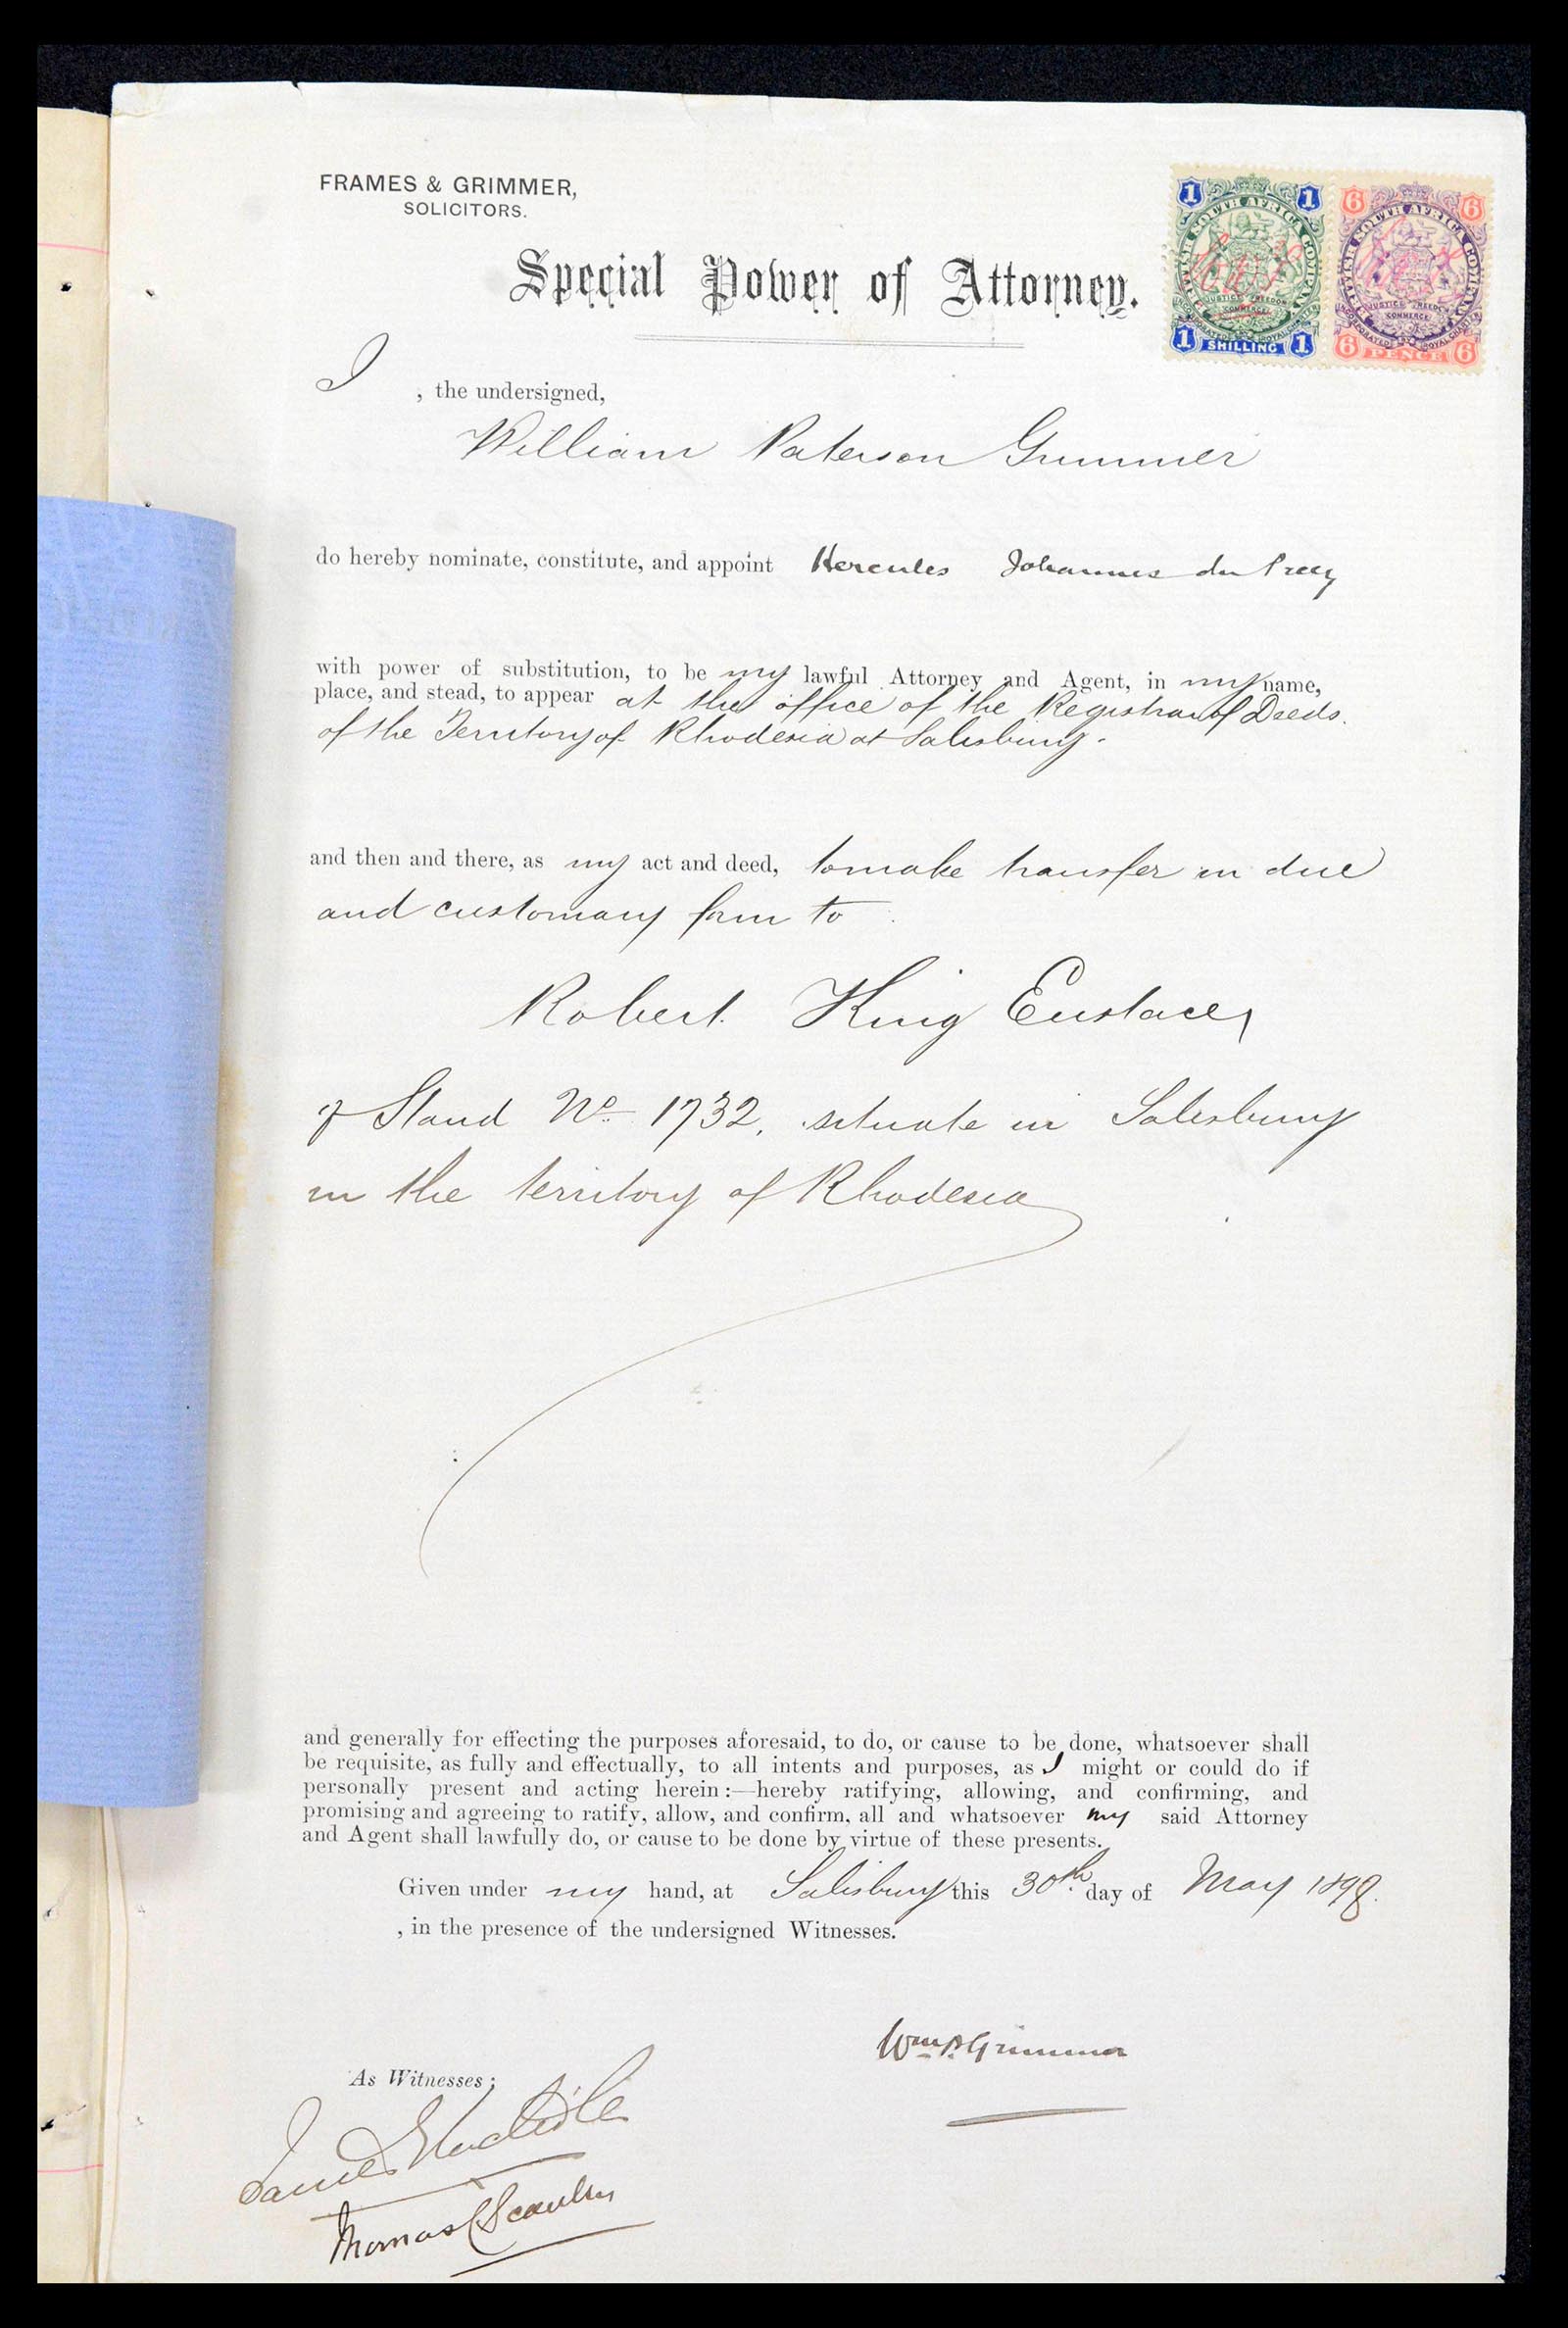 FRAMES & GRIMMER,
SOLICITORS.
Special Power of Attorney.
1 1
BRITISH SOUTH AFRICA COMPANY
JUSTICE FREEDOM
COMMERCE
INCORPORATED BY ROYAL CHARTER
1 SHILLING 1
6 6
BRITISH SOUTH AFRICA COMPANY
JUSTICE FREEDOM
COMMERCE
INCORPORATED BY ROYAL CHARTER
6 PENCE 6
I , the undersigned,
William Paterson Grimmer
do hereby nominate, constitute, and appoint Hercules Johannes du Preez
with power of substitution, to be my lawful Attorney and Agent, in my name,
place, and stead, to appear at the office of the Registrar of Deeds
of the Territory of Rhodesia at Salisbury.
and then and there, as my act and deed, to make transfer in due
and customary form to
Robert King Eustace,
of Stand No 1732, situate in Salisbury
in the territory of Rhodesia
and generally for effecting the purposes aforesaid, to do, or cause to be done, whatsoever shall
be requisite, as fully and effectually, to all intents and purposes, as I might or could do if
personally present and acting herein:—hereby ratifying, allowing, and confirming, and
promising and agreeing to ratify, allow, and confirm, all and whatsoever my said Attorney
and Agent shall lawfully do, or cause to be done by virtue of these presents.
Given under my hand, at Salisbury this 30th day of May 1898.
, in the presence of the undersigned Witnesses.
Wm P Grimmer
As Witnesses;
James
Thomas C Scanlen